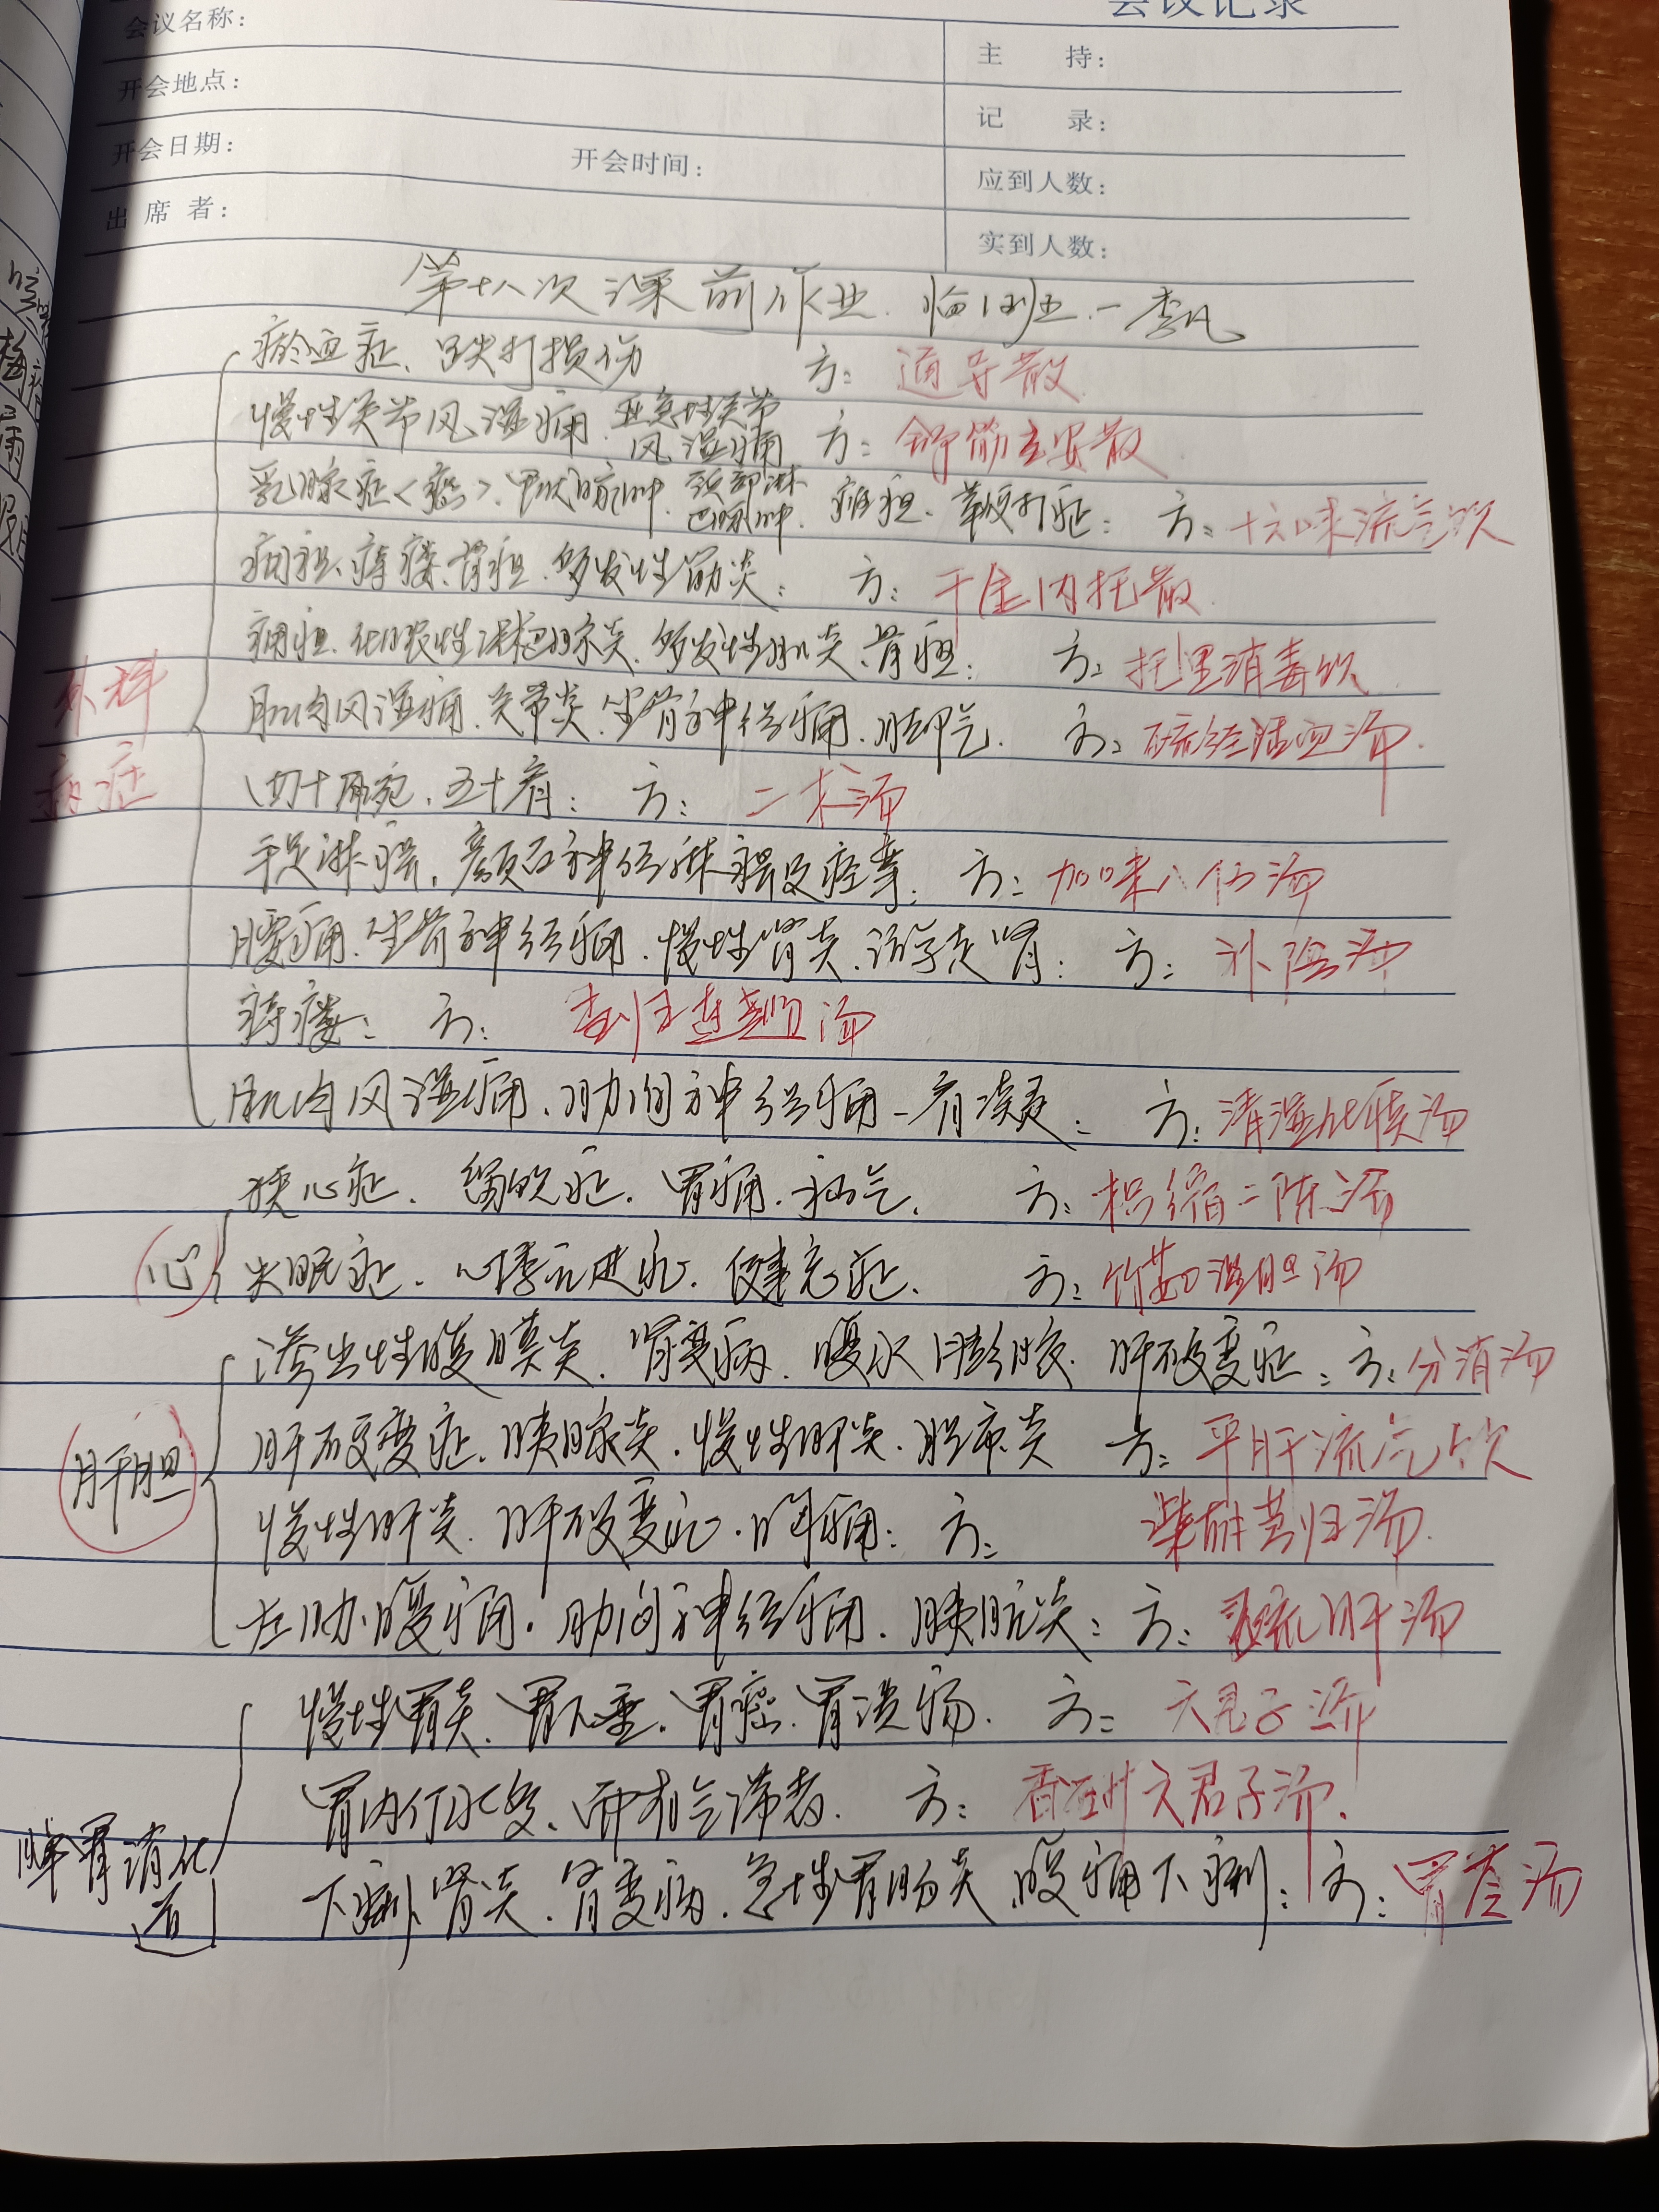 会议记录
会议名称：
主 持：
开会地点：
记 录：
开会日期： 开会时间：
应到人数：
出 席 者：
实到人数：
第十八次课前作业 临沂班 一李凡
瘀血症、跌打损伤 方：通导散
慢性关节风湿痛、亚急性关节风湿痛 方：舒筋立安散
乳腺症<癌>、甲状腺肿、颈部淋巴腺肿、瘫疽、梅打症：方：十六味流气饮
痈疽、痔瘘、骨疽、多发性筋炎：方：千金内托散
外科病症
痈疽、化脓性淋巴腺炎、多发性肌炎、骨疽：方：托里消毒饮
肌肉风湿痛、关节炎、坐骨神经痛、脚气、方：疏经活血汤
四十肩、五十肩：方：二术汤
手足麻痹、颜面神经麻痹及痉挛：方：加味八仙汤
腰痛、坐骨神经痛、慢性肾炎、游走肾：方：补阴汤
痔瘘：方：
肌肉风湿痛、肋间神经痛－有淡处：方：清湿化痰汤
心
狭心症、留饮症、胃痛、疝气、方：枳缩二陈汤
失眠症、心悸亢进症、健忘症、方：竹茹温胆汤
肝胆
渗出性腹膜炎、肾变病、腹水膨胀、肝硬变症：方：分消汤
肝硬变症、胰腺炎、慢性肝炎、胆囊炎 方：平肝流气饮
慢性肝炎、肝硬变症、胸痛：方：柴胡芎归汤
左肋腹痛、肋间神经痛、胰脏炎：方：疏肝汤
脾胃消化道
慢性胃炎、胃下垂、胃癌、胃溃疡、方：六君子汤
胃内停水多、而有气滞者、方：香砂六君子汤、
下痢、肾炎、肾变病、急性胃肠炎、腹痛下痢：方：胃苓汤